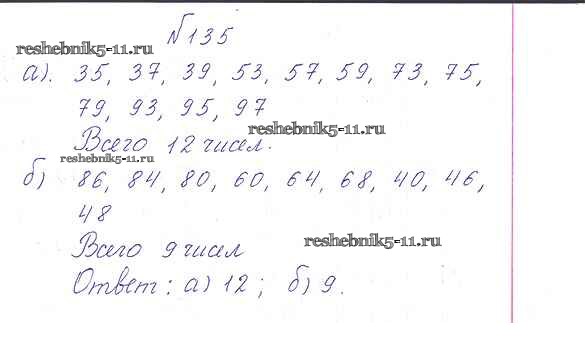 №135
reshebnik5-11.ru
а). 35, 37, 39, 53, 57, 59, 73, 75,
79, 93, 95, 97
reshebnik5-11.ru
Всего 12 чисел.
reshebnik5-11.ru
б) 86, 84, 80, 60, 64, 68, 40, 46,
48
Всего 9 чисел
reshebnik5-11.ru
Ответ: а) 12; б) 9.